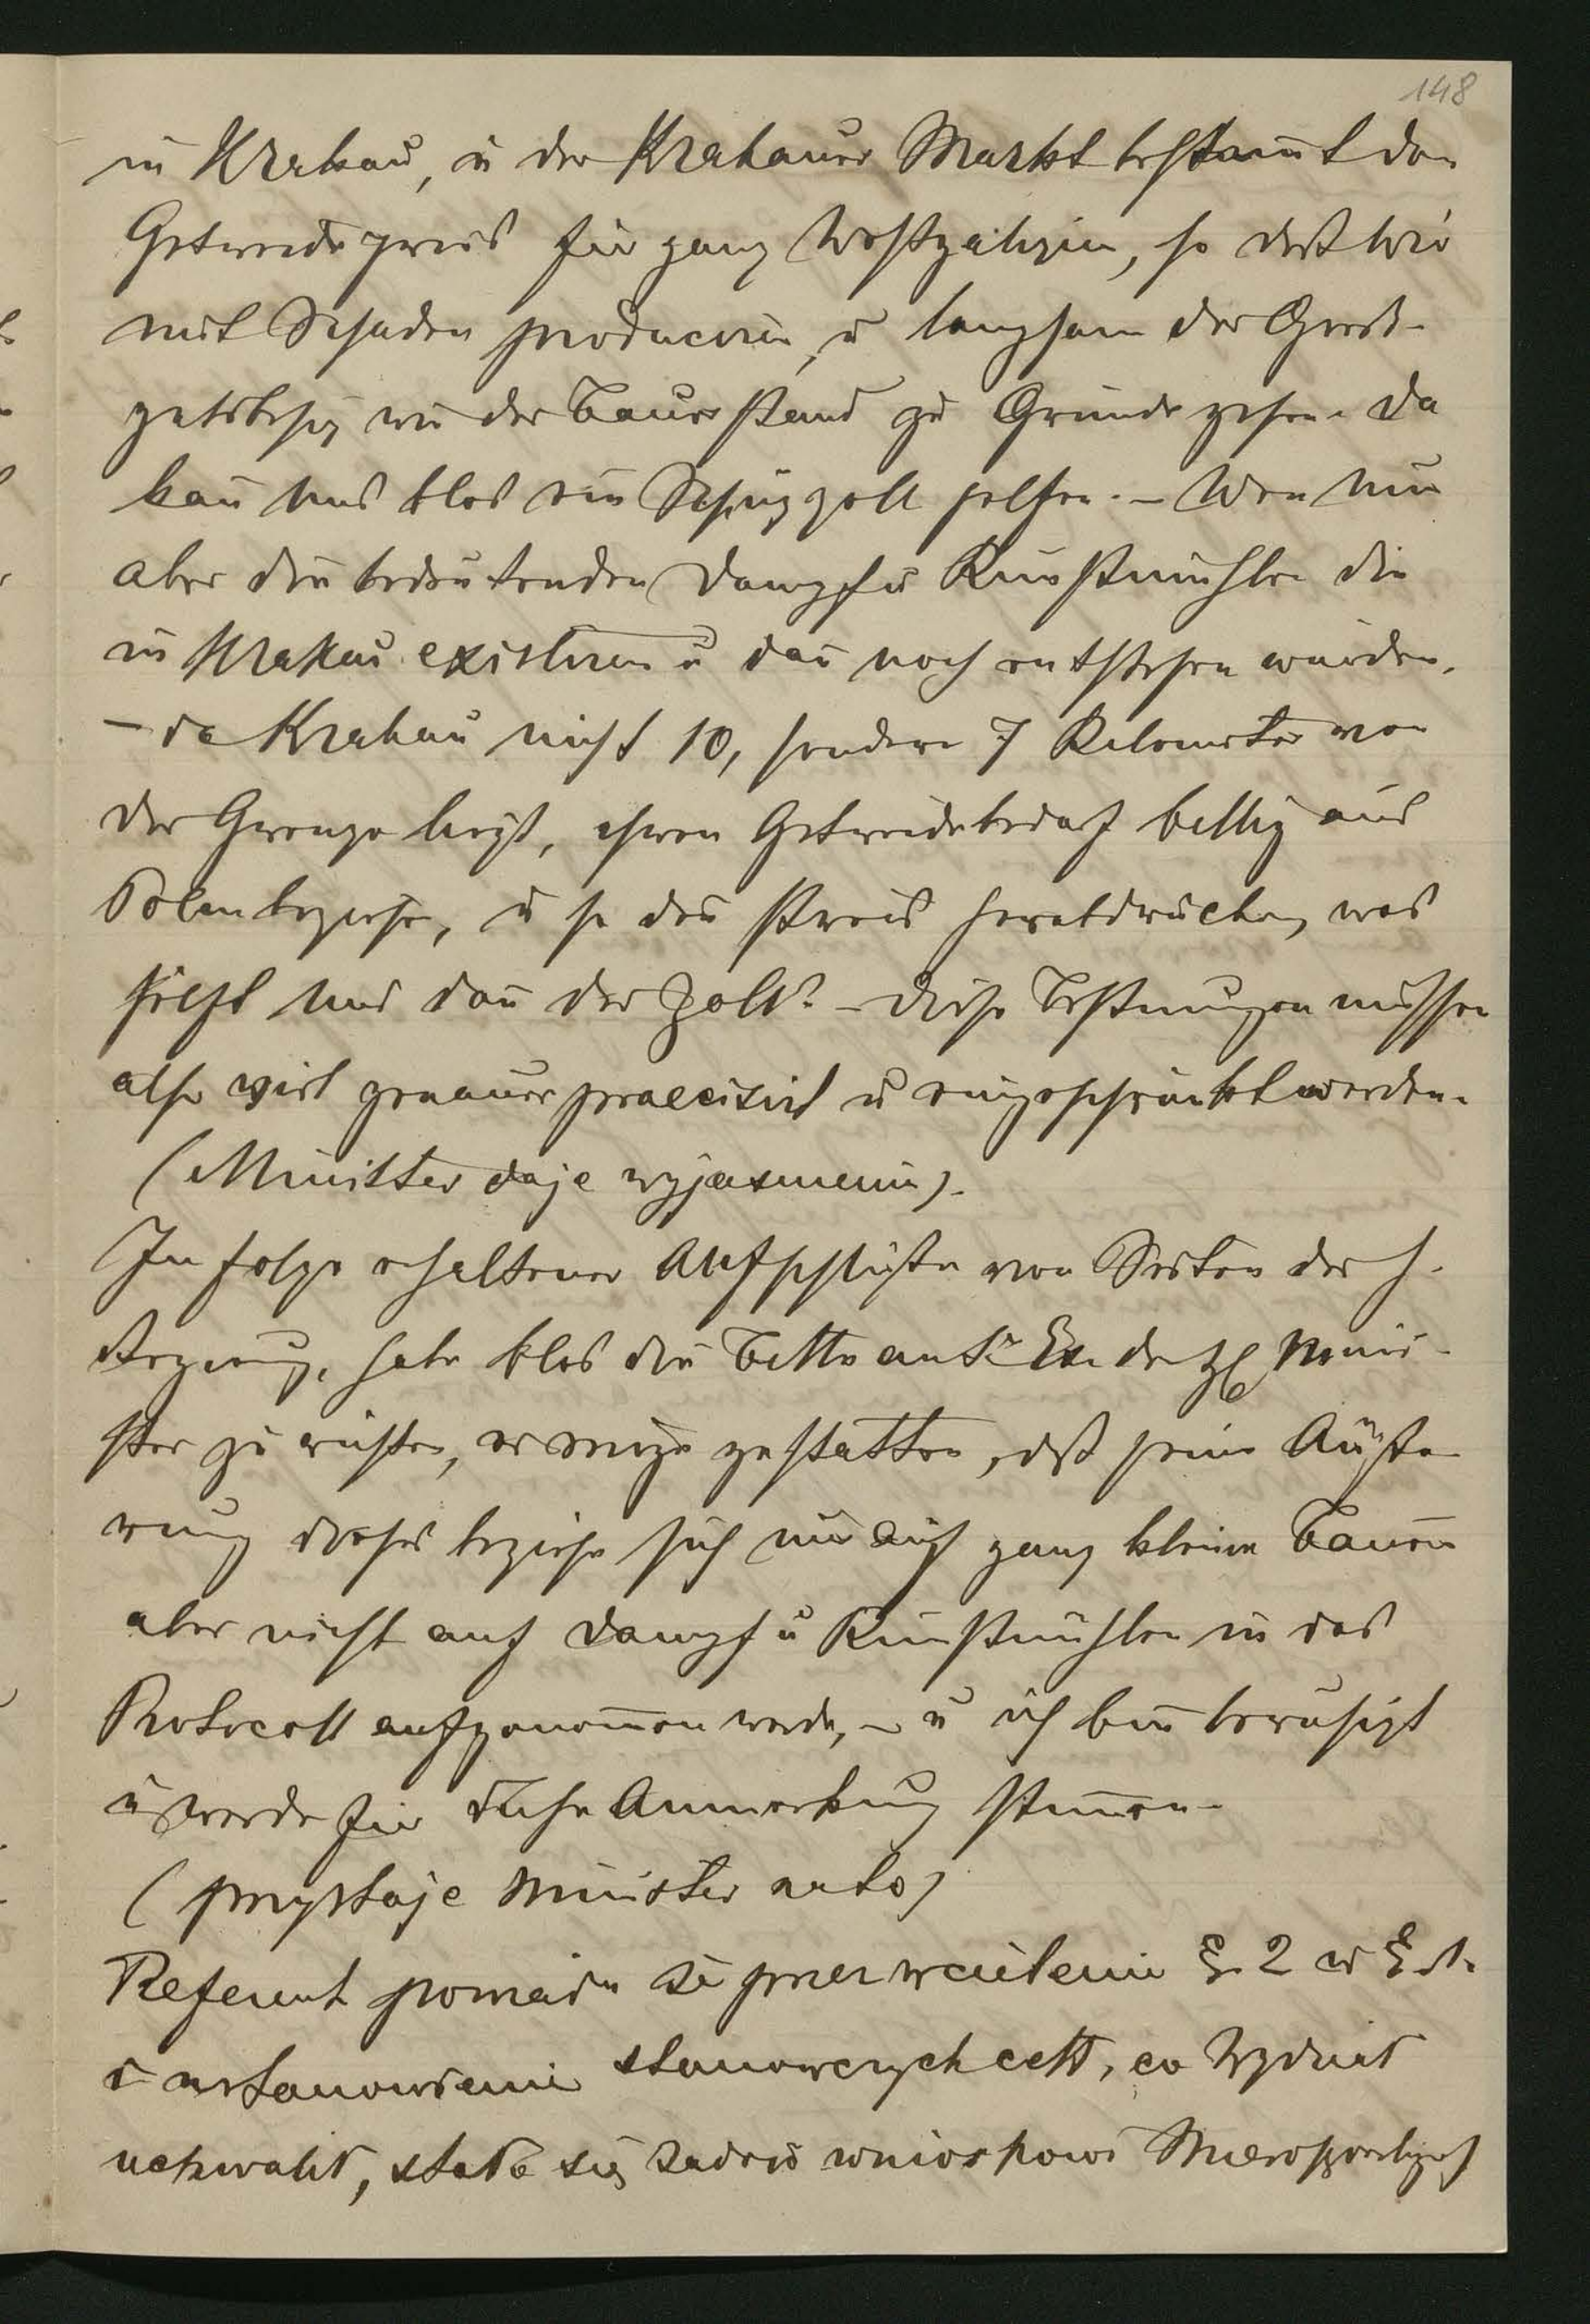 148
in Krakau, u der Krakauer Markt bestam̄t den
Getreidepreis für ganz Westgalizien, so daß wir
mit Schaden produciren, u langsam der Groß-
gutsbesitz wie der Bauerstand zu Grunde gehen. Da
kan̄ uns blos ein Schutzzoll helfen. – Wen nun
aber die bedeutenden Dampf u Kunstmühlen die
in Krakau existiren u dan̄ noch entstehen würden,
– da Krakau nicht 10, sondern 7 Kilometer von
der Grenze liegt, ihren Getreidebedarf billig aus
Polen beziehen, u so den Preis herabdrücken, was
hilft uns dan̄ der Zoll? – Diese Bestim̄ungen müssen
also viel genauer praecisirt u eingeschränkt werden.
(Minister daje wyjasnienie).
In folge erhaltener Aufschlüße von Seiten der h.
Regierung, habe blos die Bitte an Sr Exc. den H Mini-
ster zu richten, er möge gestatten, daß seine Äuße-
rung dieses beziehe sich nur auf ganz kleine Bauern
aber nicht auf Dampf u Kunstmühlen in das
Protocoll aufgenom̄en werde, – u ich bin beruhigt
u werde für diese Anmerkung stim̄en.
(przystaje Minister na to)
Referent powiada że przez wcielenie §. 2 w § 1.
i ustanowienie stanowczych cett, co Wydział
uchwalił, stało się zadość wnioskowi